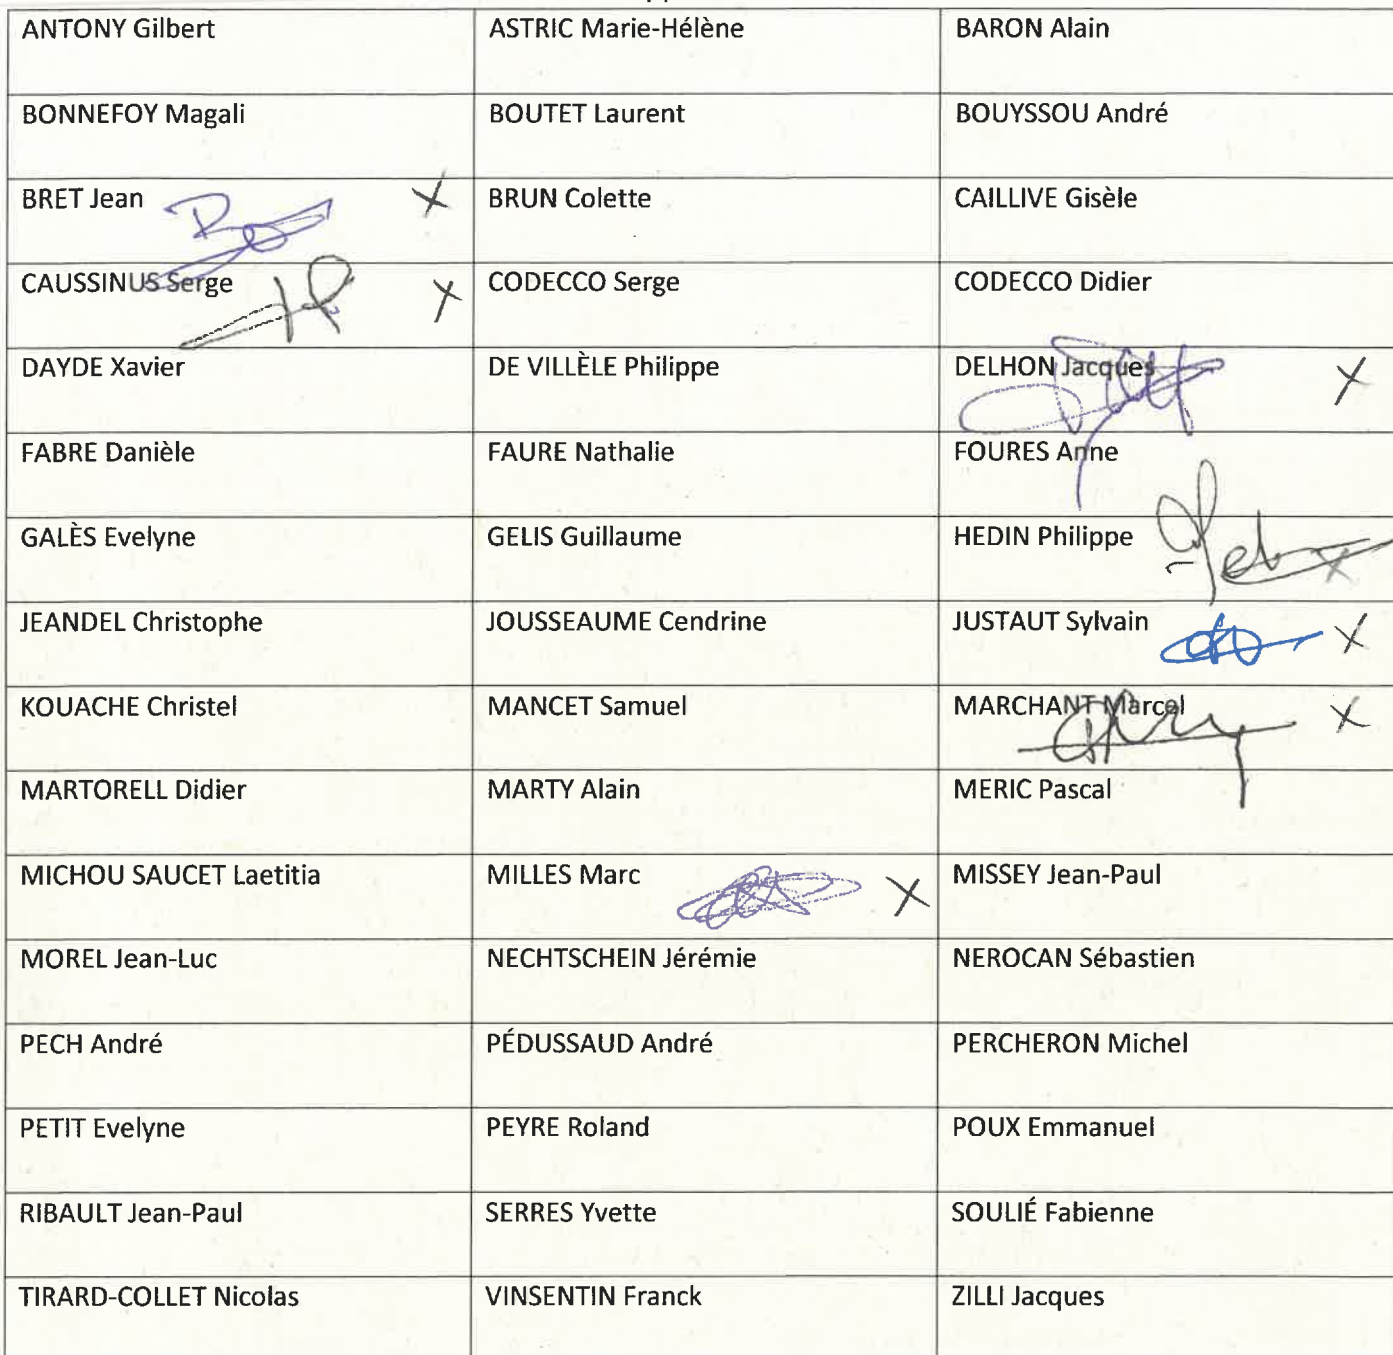 ANTONY Gilbert ASTRIC Marie-Hélène BARON Alain
BONNEFOY Magali BOUTET Laurent BOUYSSOU André
BRET Jean X BRUN Colette CAILLIVE Gisèle
CAUSSINUS Serge X CODECCO Serge CODECCO Didier
DAYDE Xavier DE VILLÈLE Philippe DELHON Jacques X
FABRE Danièle FAURE Nathalie FOURES Anne
GALÈS Evelyne GELIS Guillaume HEDIN Philippe X
JEANDEL Christophe JOUSSEAUME Cendrine JUSTAUT Sylvain X
KOUACHE Christel MANCET Samuel MARCHANT Marcel X
MARTORELL Didier MARTY Alain MERIC Pascal
MICHOU SAUCET Laetitia MILLES Marc X MISSEY Jean-Paul
MOREL Jean-Luc NECHTSCHEIN Jérémie NEROCAN Sébastien
PECH André PÉDUSSAUD André PERCHERON Michel
PETIT Evelyne PEYRE Roland POUX Emmanuel
RIBAULT Jean-Paul SERRES Yvette SOULIÉ Fabienne
TIRARD-COLLET Nicolas VINSENTIN Franck ZILLI Jacques